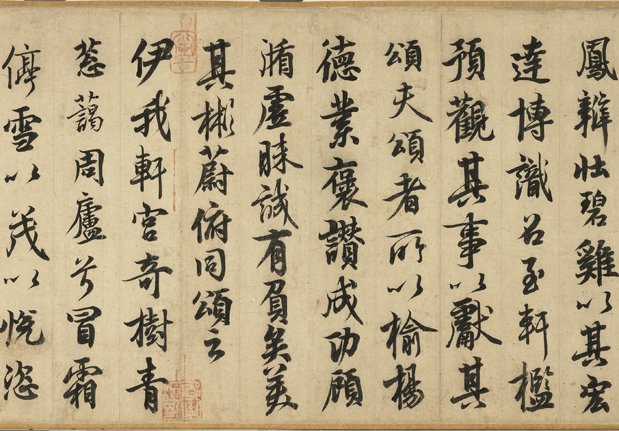 鳳辯壯碧雞以其宏
達博識召至軒檻
預觀其事以獻其
頌夫頌者所以揄揚
德業褒讚成功顧
循虛昧誠有負矣美
其彬蔚俯同頌云
伊我軒宮奇樹青
蔥藹周廬兮冒霜
停雪以茂以悅恣